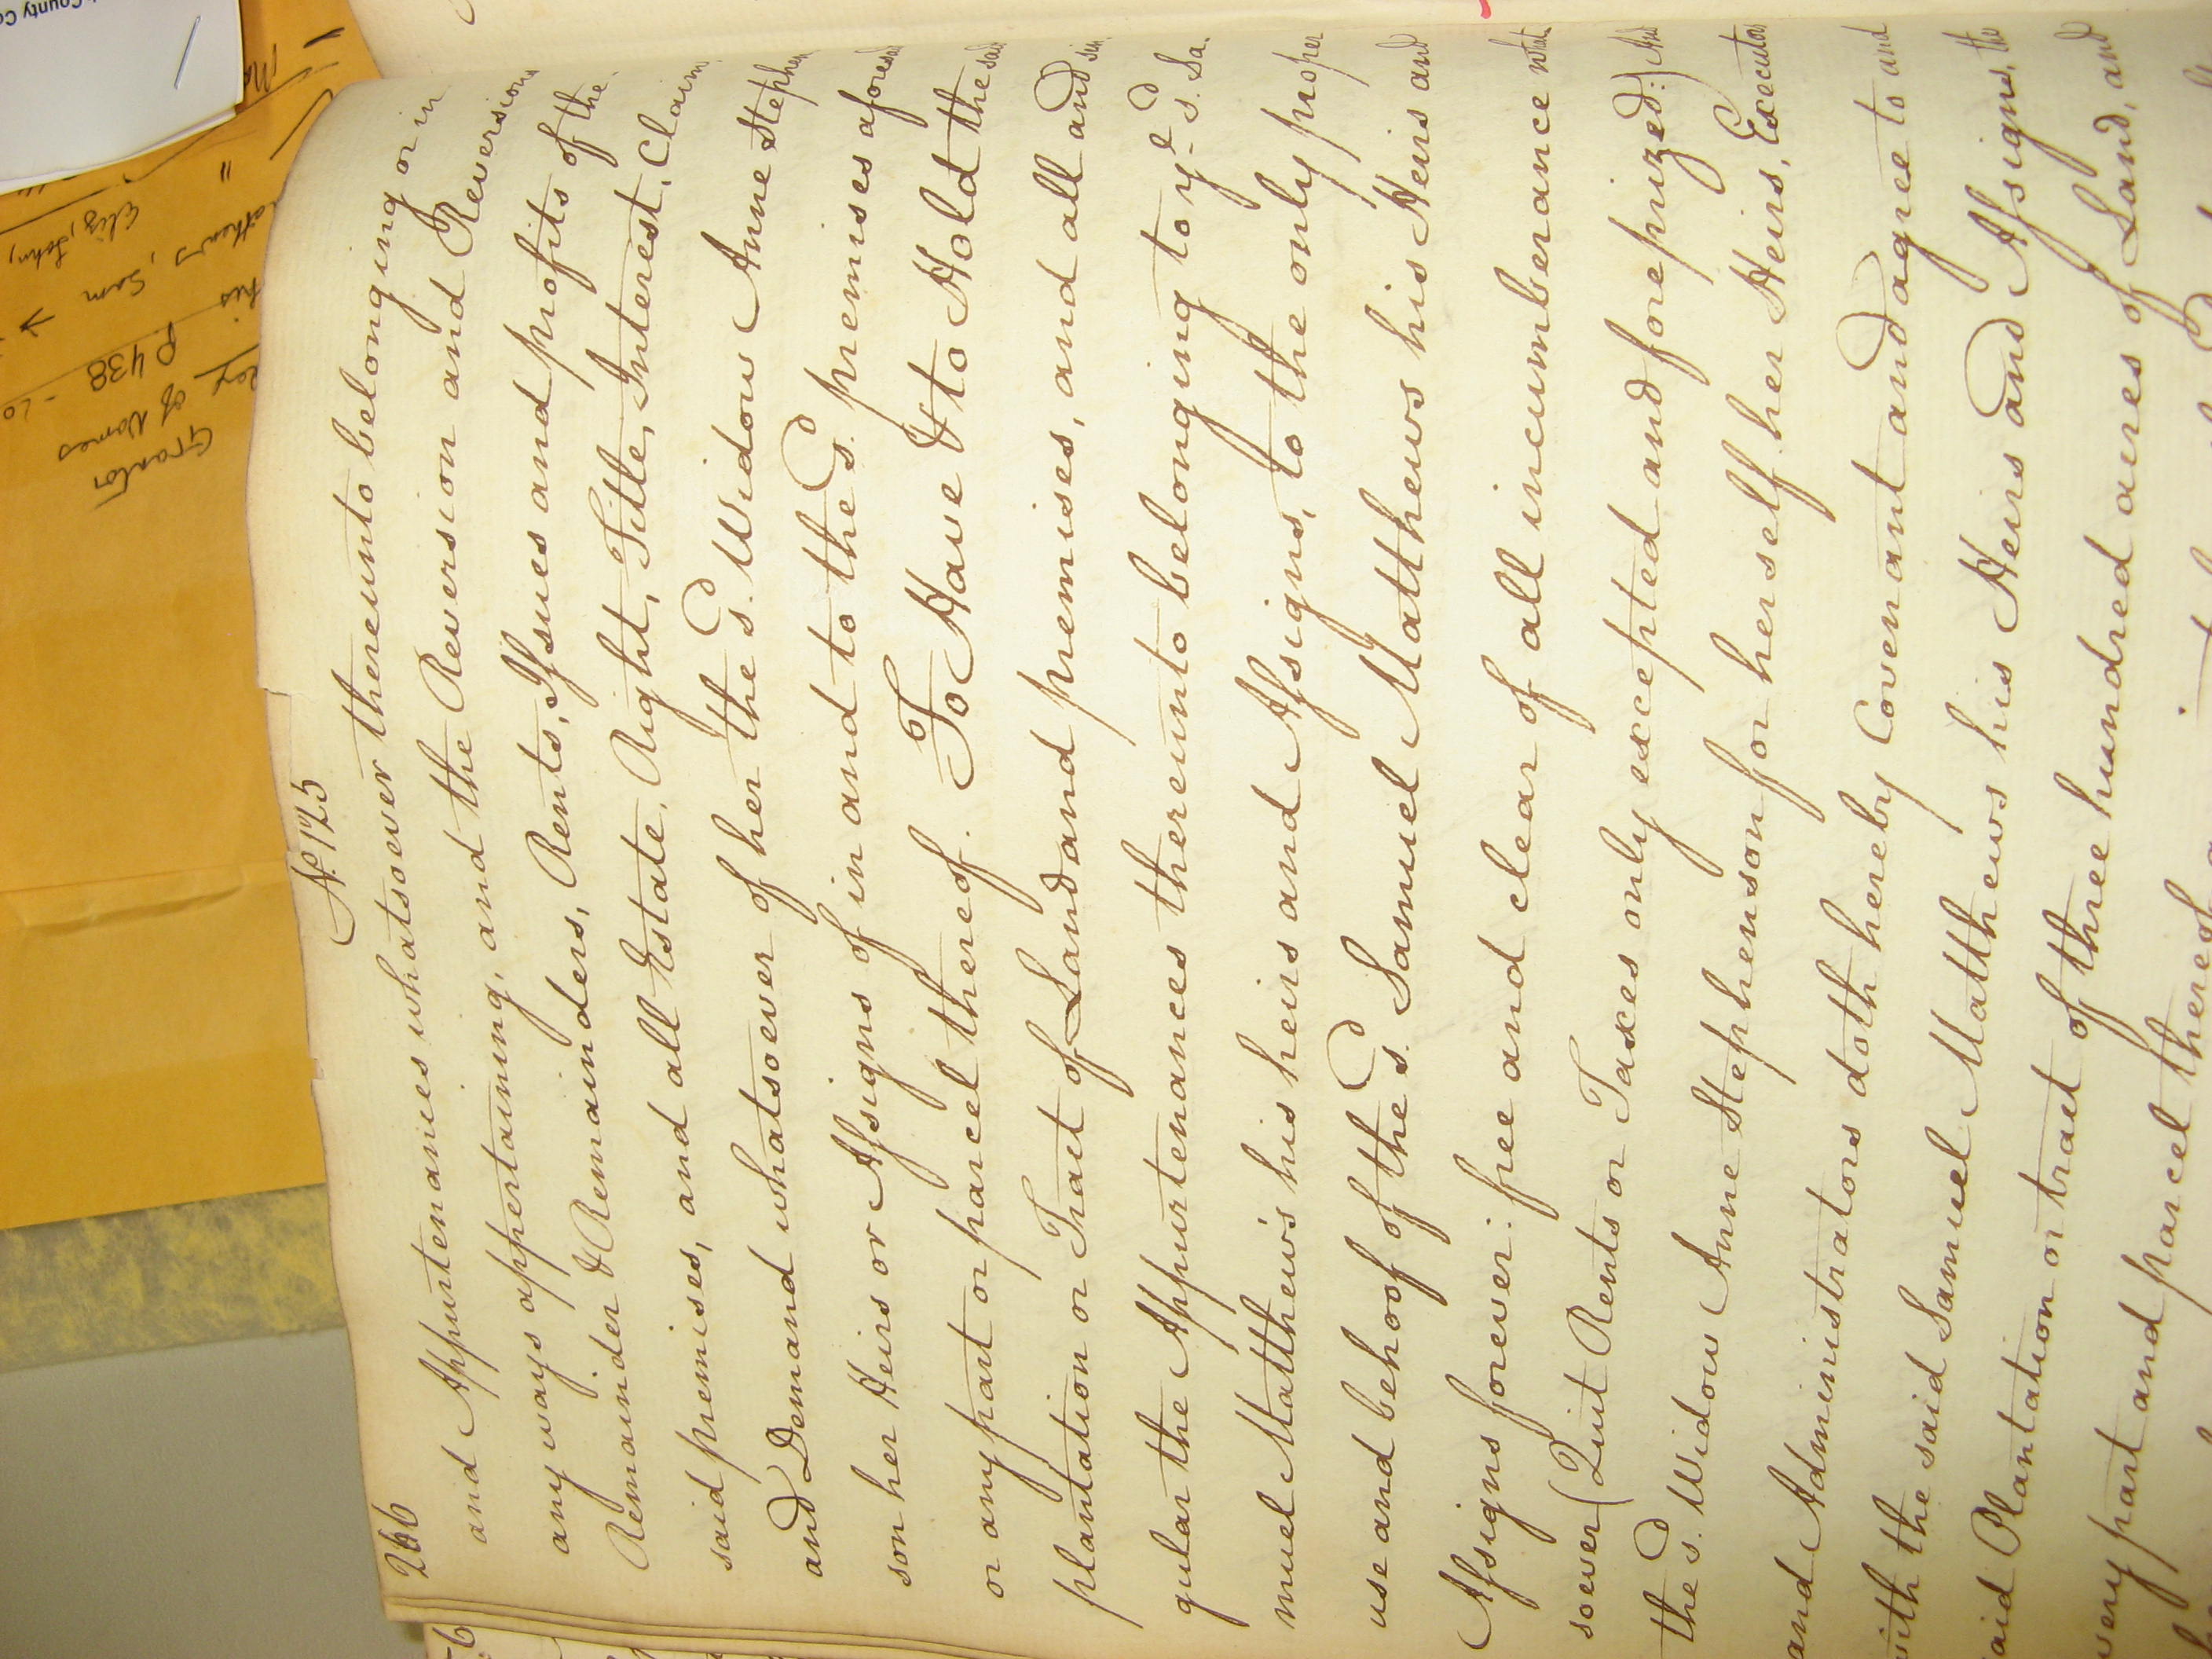 266
No. 125
and Appurtenances whatsoever thereunto belonging or in
any ways appertaining, and the Reversion and Reversions
Remainder & Remainders, Rents, Issues and profits of the
said premises, and all Estate, Right, Title, Interest, Claim
and Demand whatsoever of her the sd. Widow Anne Stephen
son her Heirs or Assigns of in and to the sd. premises aforesaid
or any part or parcel thereof. To Have & to Hold the said
plantation or Tract of Land and premises, and all and sin
gular the Appurtenances thereunto belonging to ye sd. Sa.
muel Matthew's his heirs and Assigns, to the only proper
use and behoof of the sd. Samuel Matthews his Heirs and
Assigns forever: free and clear of all incumberance what
soever (Quit Rents or Taxes only excepted and foreprized:) And
the sd. Widow Anne Stephenson for herself her Heirs, Executors
and Administrators doth hereby Covenant and agree to and
with the said Samuel Matthews his Heirs and Assigns, the
said Plantation or tract of three hundred acres of Land, and
every part and parcel thereof
County Co
Grantor
of Names
P 438
his
Sam
Eliz, John,